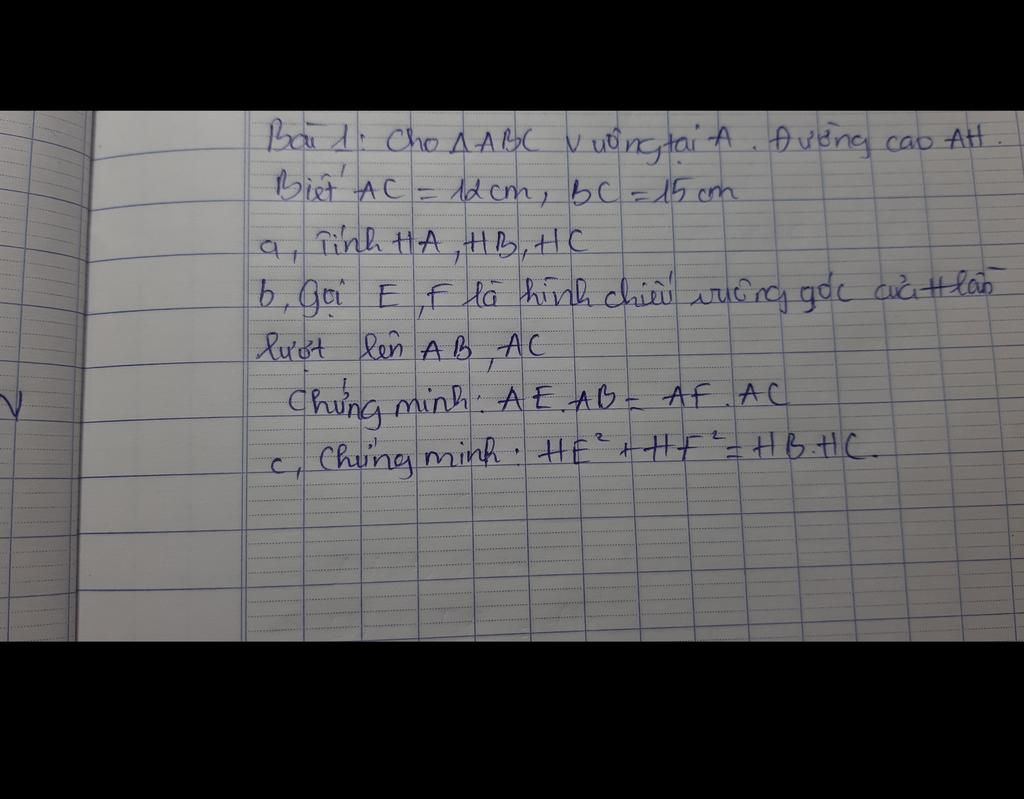 Bài 1: Cho ΔABC vuông tại A. Đường cao AH.
Biết AC = 12cm, BC = 15cm
a, Tính HA, HB, HC
b, Gọi E, F là hình chiếu vuông góc của H lần
lượt lên AB, AC
Chứng minh: AE.AB = AF.AC
c, Chứng minh: HE² + HF² = HB.HC.